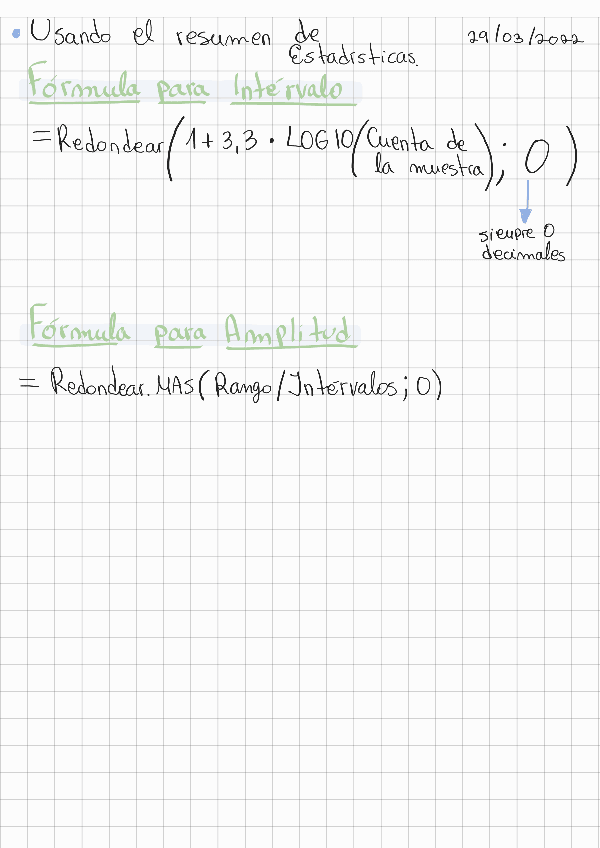 • Usando el resumen de 29/03/2022
Estadísticas.
Fórmula para Intérvalo
=Redondear(1+3,3 • LOG10(Cuenta de la muestra); 0)
siempre 0
decimales
Fórmula para Amplitud
= Redondear.MAS(Rango/Intérvalos; 0)